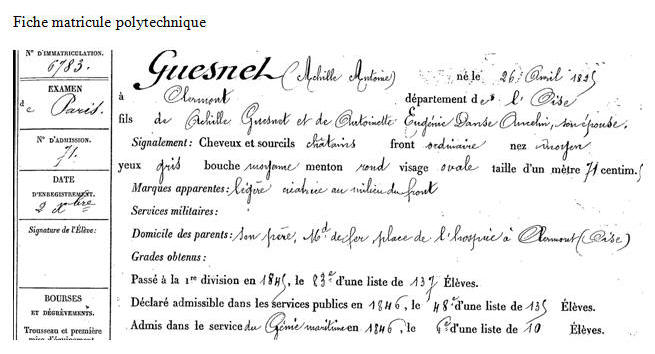 Fiche matricule polytechnique
N° D'IMMATRICULATION.
6783.
EXAMEN
de Paris.
N° D'ADMISSION.
71.
DATE
D'ENREGISTREMENT.
2 dbre
Signature de l'Élève:
BOURSES
ET DÉGRÈVEMENTS.
Trousseau et première
mise d'équipement
Guesnet (Achille Antoine) né le 26 Avril 1825
à Clermont département de l'Oise
fils de Achille Guesnet et de Antoinette Eugénie Danse Ancelin, son épouse.
Signalement: Cheveux et sourcils châtains front ordinaire nez moyen
yeux gris bouche moyenne menton rond visage ovale taille d'un mètre 71 centim.s
Marques apparentes: légère cicatrice au milieu du front
Services militaires:
Domicile des parents: son père, Md. de fer place de l'hospice à Clermont (Oise)
Grades obtenus:
Passé à la 1re division en 1845, le 83e d'une liste de 137 Élèves.
Déclaré admissible dans les services publics en 1846, le 48e d'une liste de 135 Élèves.
Admis dans le service du Génie maritime en 1846, le 6e d'une liste de 10 Élèves.